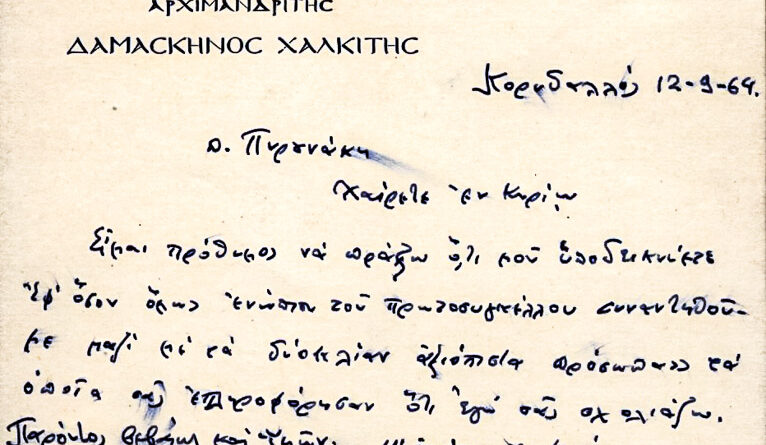 ΑΡΧΙΜΑΝΔΡΙΤΗΣ
ΔΑΜΑΣΚΗΝΟΣ ΧΑΛΚΙΤΗΣ
Κορυδαλλός 12-9-64.
π. Πυρουνάκη
Χαίρετε ἐν Κυρίῳ
Εἶμαι πρόθυμος νὰ πράξω ὅ,τι μοῦ ὑποδεικνύετε
ἐφ' ὅσον ὅμως ἐνώπιον τοῦ πρωτοσυγκέλλου συναντηθοῦ-
με μαζὶ μὲ τὰ ἀξιόπιστα πρόσωπα τὰ
ὁποῖα σᾶς ἐπληροφόρησαν ὅτι ἐγὼ σᾶς σχολιάζω.
Παρόντος βεβαίως καὶ